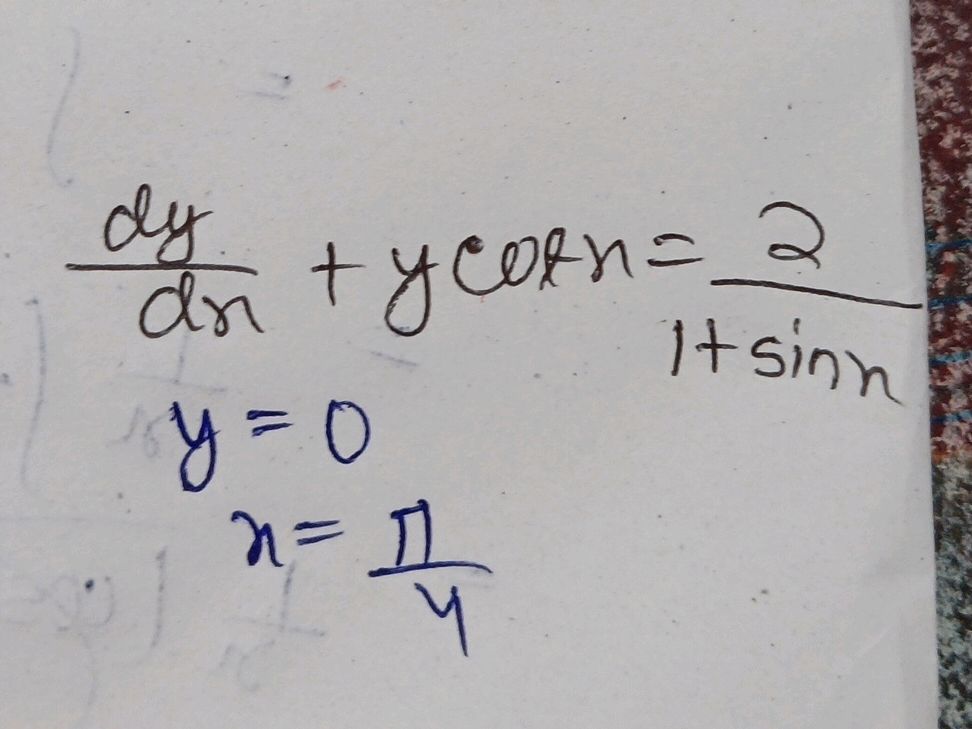 dy/dx + y cot x = 2/(1 + sin x)
y = 0
x = π/4